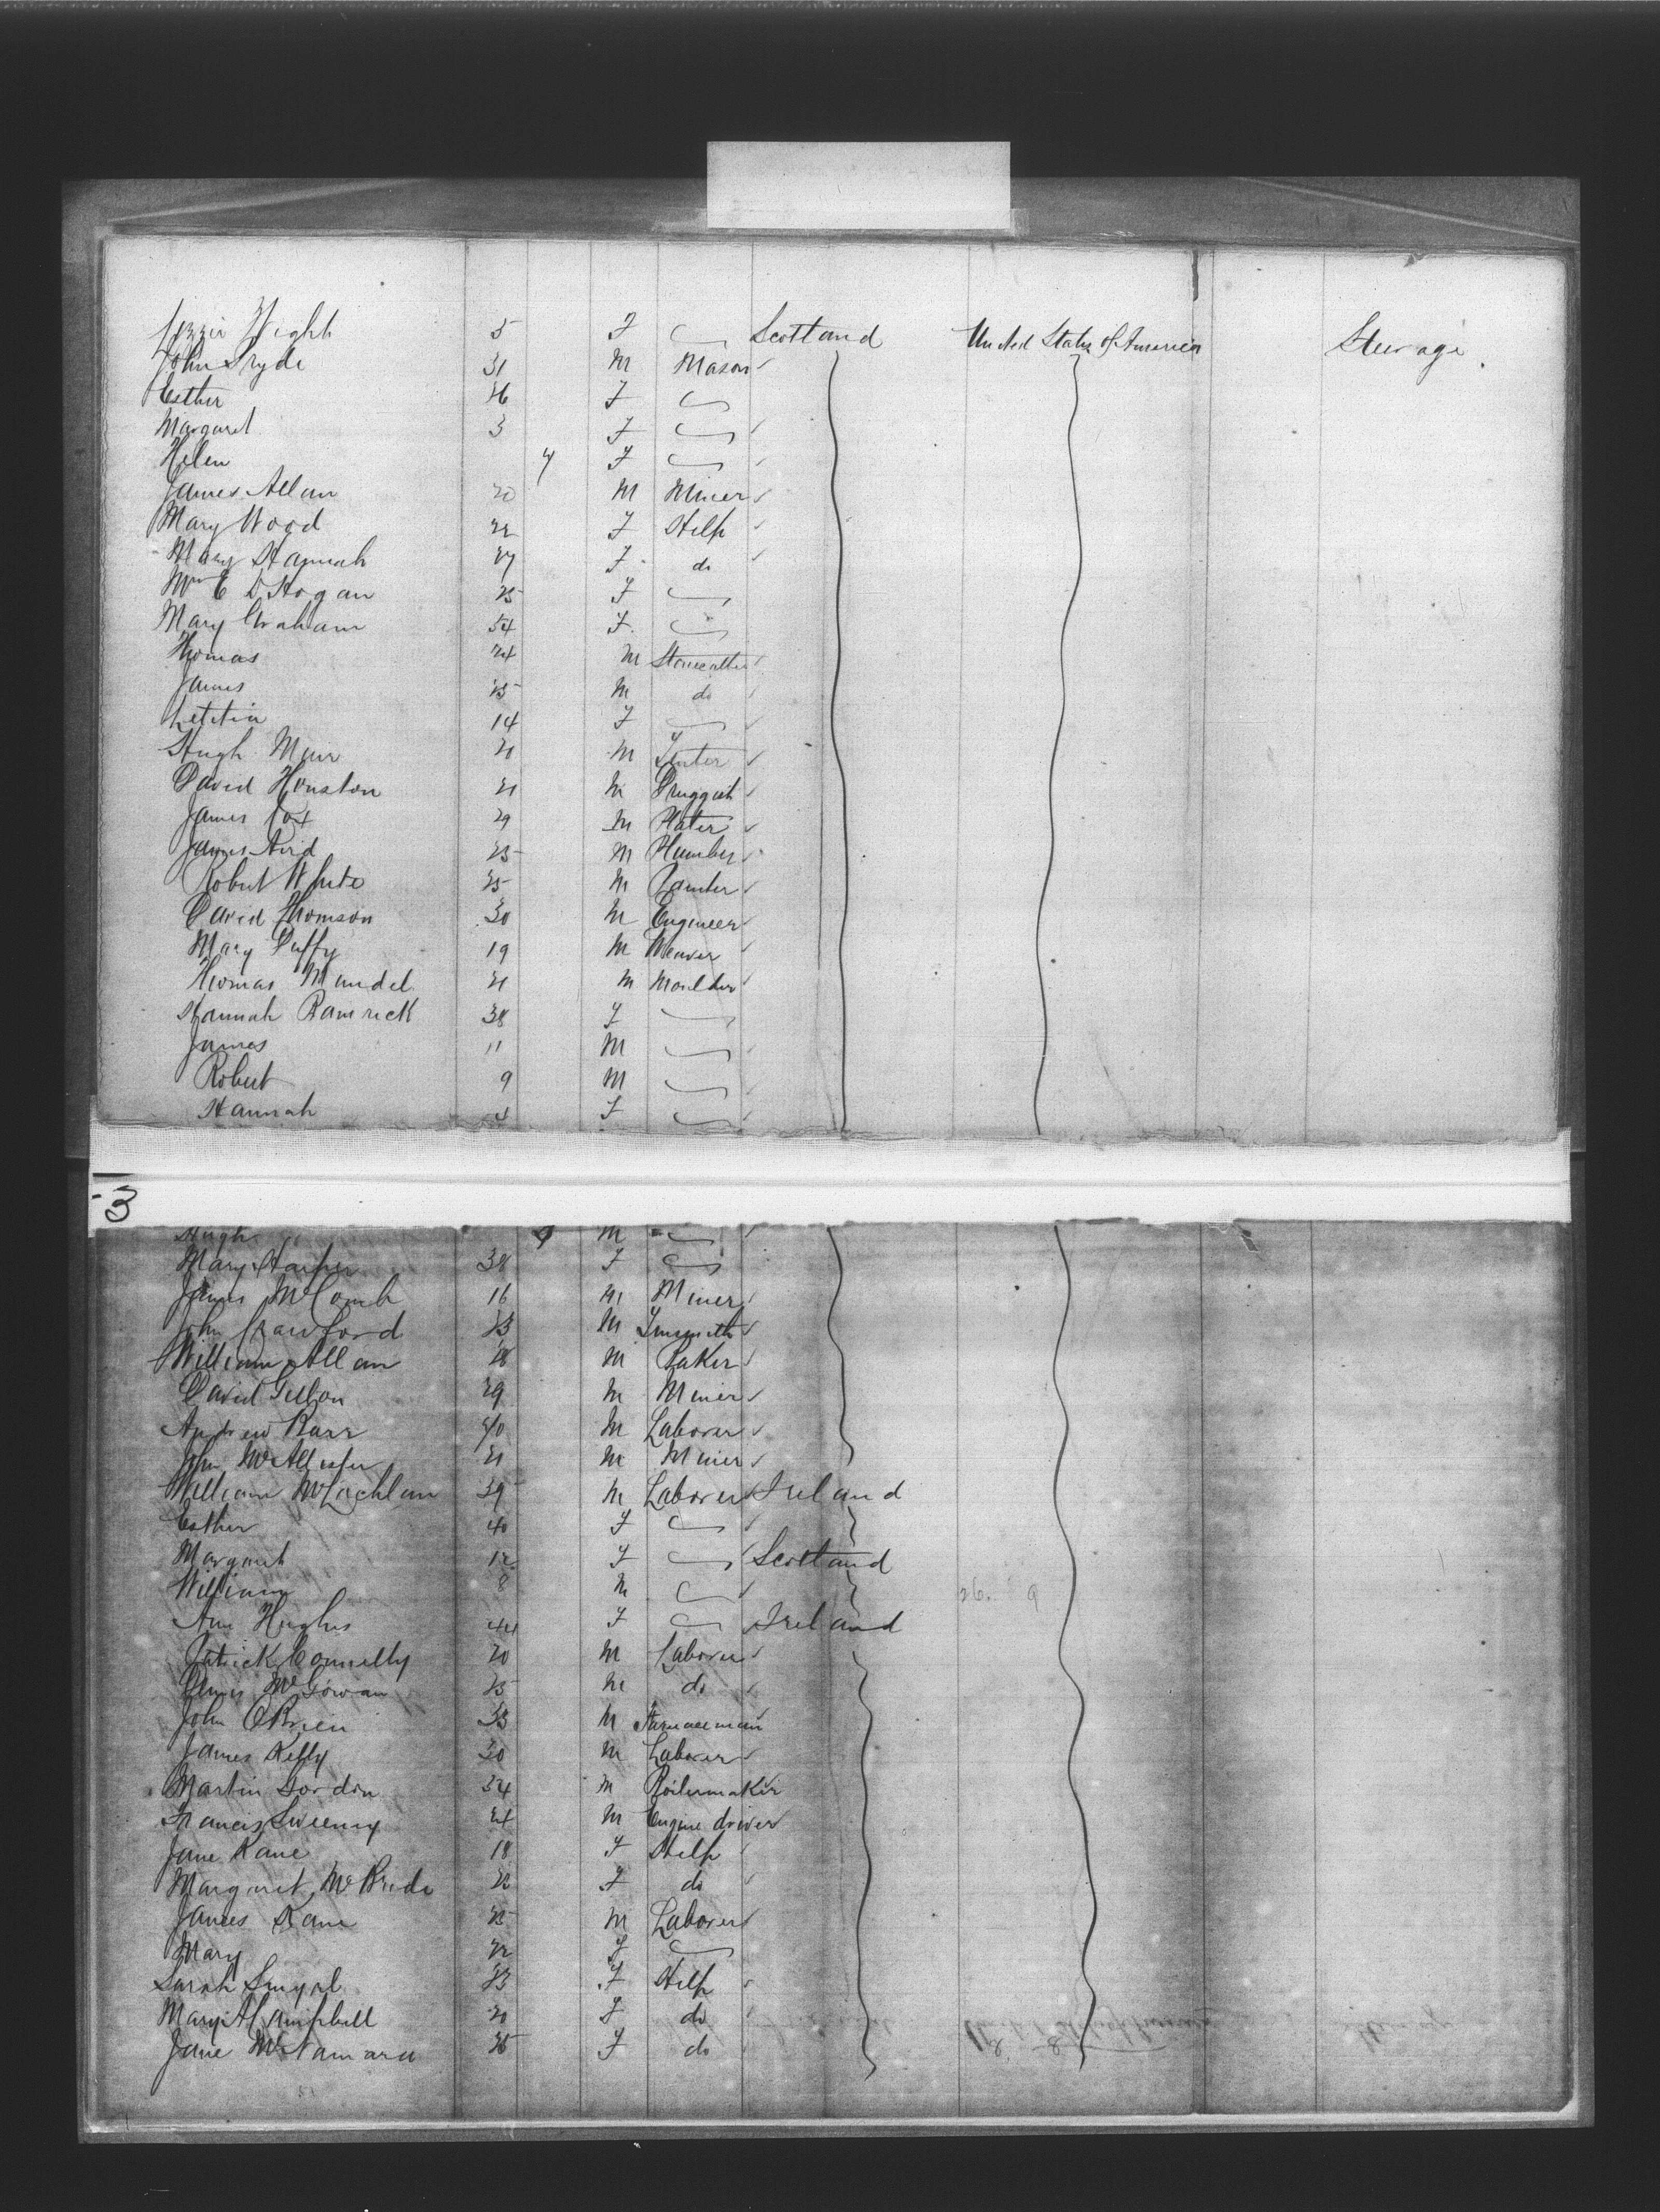 Lizzie Wight 5 F Scotland United States of America Steerage
John Pryde 31 M Mason
Esther 26 F
Margaret 3 F
Helen 4 F
James Allan 20 M Miner
Mary Wood 22 F Help
Mary Hannah 27 F do
Mrs E D Hogan 25 F
Mary Graham 54 F
Thomas 24 M Stonecutter
James 25 M do
Letitia 14 F
Hugh Muir 21 M
David Houston 21 M Druggist
James Fox 29 M Plater
James Aird 25 M Plumber
Robert White 25 M Painter
David Thomson 30 M Engineer
Mary Duffy 19 M Weaver
Thomas Mandel 21 M Moulder
Hannah Ramrick 38 F
James 11 M
Robert 9 M
Hannah 4 F
-3
Hugh M
Mary Harper 38 F
James McComb 16 M Miner
John Crawford 23 M Tinsmith
William Allan 28 M Baker
David Gibbon 29 M Miner
Andrew Barr 40 M Laborer
John McAllister 21 M Miner
William McLachlan 39 M Laborer Ireland
Esther 40 F
Margaret 12 F Scotland
William 8 M
Ann Hughes 44 F Ireland
Patrick Connelly 20 M Laborer
McGowan 25 M do
John OBrien 33 M Furnaceman
James Kelly 30 M Laborer
Martin Gordon 34 M Boilermaker
Francis Sweeny 24 M Engine driver
Jane Kane 18 F Help
Margaret McBride 22 F do
James Kane 25 M Laborer
Mary 22 F
Sarah 23 F Help
Mary A Campbell 20 F do
Jane McNamara 26 F do